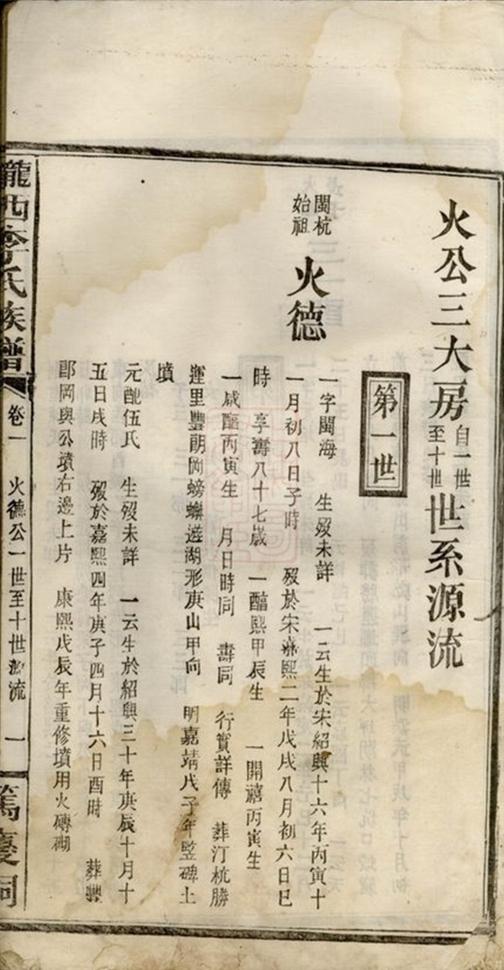 火公三大房自一世至十世世系源流
第一世
閩杭始祖 火德
一字閩海 生歿未詳 一云生於宋紹興十六年丙寅十
一月初八日子時 歿於宋嘉熙二年戊戌八月初六日巳
時 享壽八十七歲 一醞熙甲辰生 一開禧丙寅生
一咸醞丙寅生 月日時同 壽同 行實詳傳 葬汀杭勝
運里豐朗岡螃蠏遊湖形庚山甲向 明嘉靖戊子年竪碑土
墳
元配伍氏 生歿未詳 一云生於紹興三十年庚辰十月十
五日戌時 歿於嘉熙四年庚子四月十六日酉時 葬豐
郎岡與公墳右邊上片 康熙戊辰年重修墳用火磚砌
隴西李氏族譜
卷一 火德公一世至十世源流 一
篤慶祠